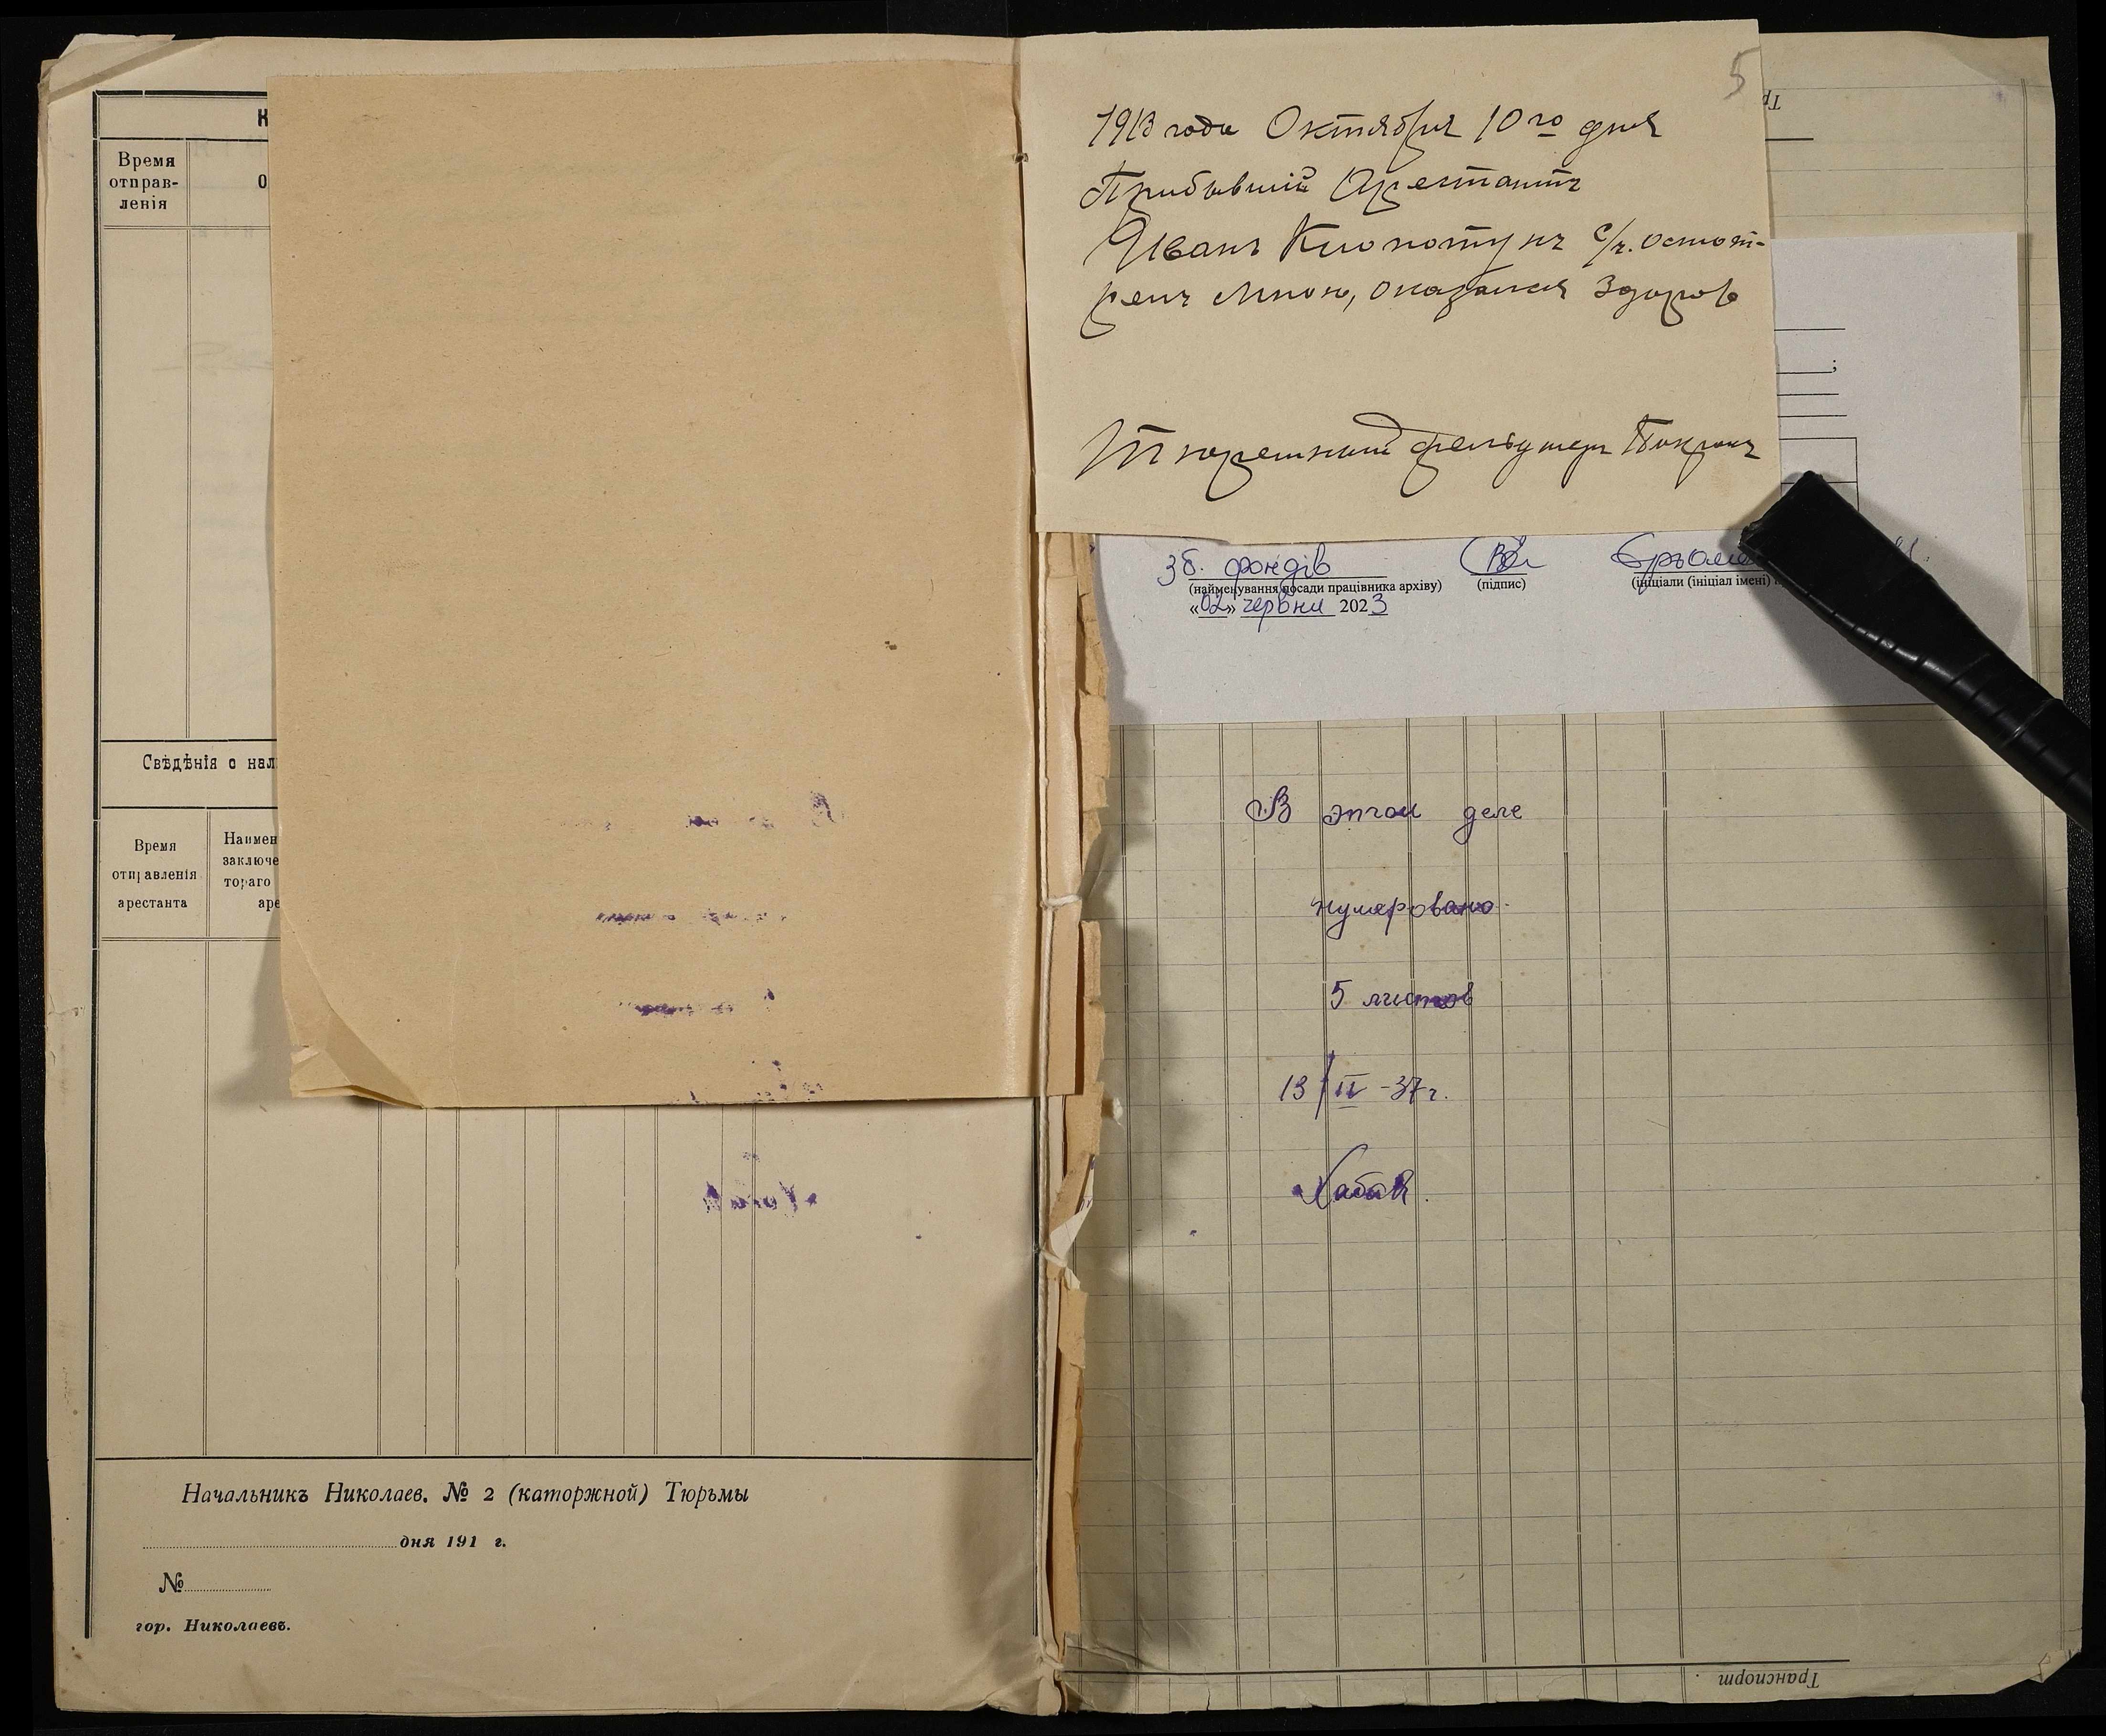 Время
отправ-
ленія
Свѣдѣнія о нал
Время
отправленія
арестанта
Наимен
заключе
тораго
аре
Начальникъ Николаев. № 2 (каторжной) Тюрьмы
дня 191 г.
№
гор. Николаевъ.
5
1913 года Октября 10го дня
Прибывшій Арестантъ
Иванъ с/ч. осмот-
ренъ мною, оказался здоров
Тюремный фельдшеръ
зб. фондів
(найменування посади працівника архіву) (підпис) (ініціали (ініціал імені)
«02» червня 2023
В этом деле
нумеровано
5 листов
13/II-37г.
Транспорт